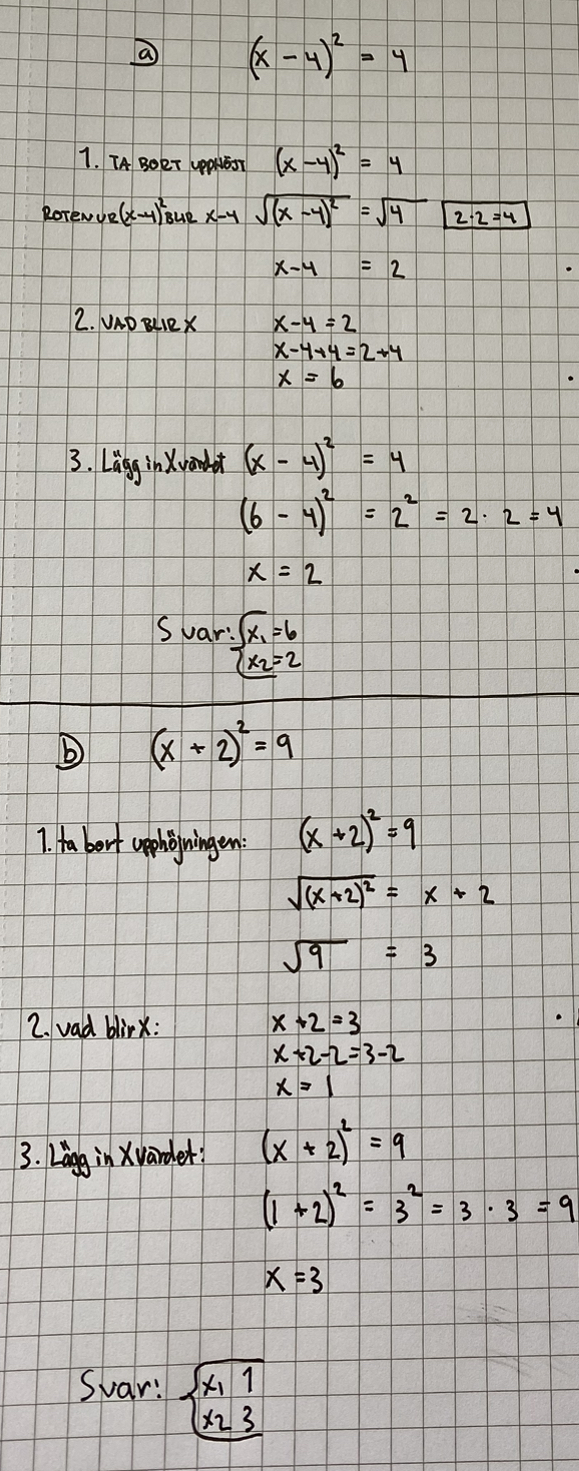 a) (x - 4)² = 4
1. TA BORT UPPHÖJT (x - 4)² = 4
ROTEN UR (x-4)² BLIR x-4 √(x - 4)² = √4 2·2=4
x-4 = 2
2. VAD BLIR X x-4 = 2
x-4+4=2+4
x = 6
3. Lägg in X värdet (x - 4)² = 4
(6 - 4)² = 2² = 2 · 2 = 4
x = 2
Svar: x₁=6
x₂=2
b) (x + 2)² = 9
1. ta bort upphöjningen: (x +2)² = 9
√(x+2)² = x + 2
√9 = 3
2. vad blir x: x+2=3
x+2-2=3-2
x = 1
3. Lägg in X värdet: (x + 2)² = 9
(1 +2)² = 3² = 3 · 3 = 9
x = 3
Svar: x₁ 1
x₂ 3